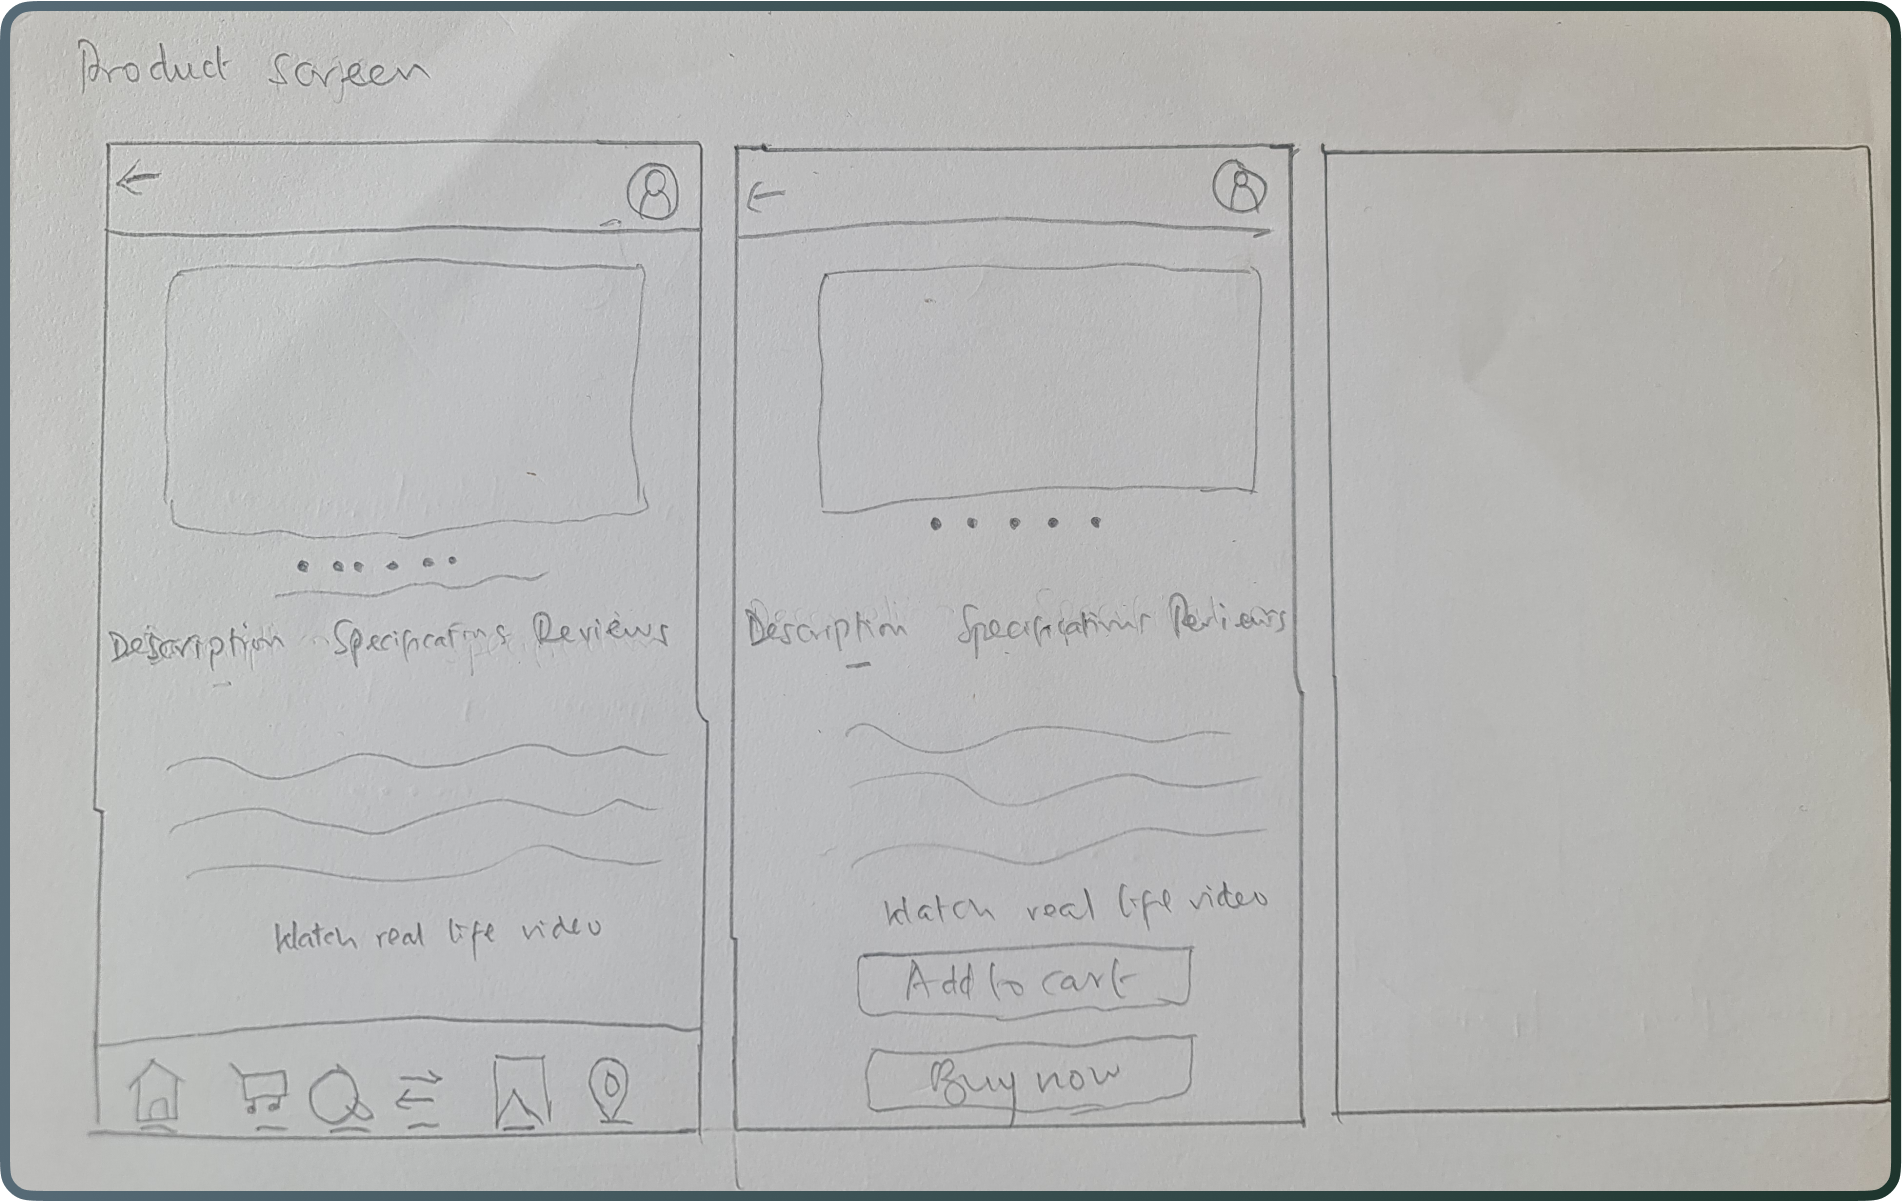 Product screen
Description Specifications Reviews
Watch real life video
Description Specifications Reviews
Watch real life video
Add to cart
Buy now